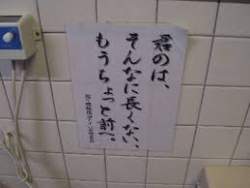 君のは、
そんなに長くない、
もうちょっと前へ。